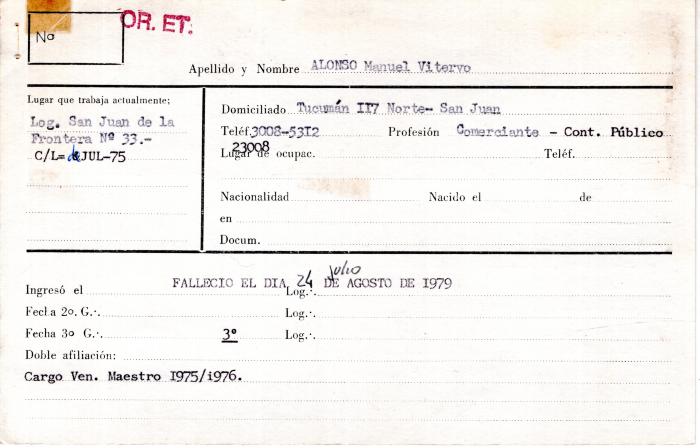 OR. ET.
Nº
Apellido y Nombre ALONSO Manuel Vitervo
Lugar que trabaja actualmente;
Log. San Juan de la
Frontera Nº 33.-
C/L= JUL-75
Domiciliado Tucumán II7 Norte- San Juan
Teléf. 3008-53I2 Profesión Comerciante - Cont. Público
23008
Lugar de ocupac. Teléf.
Nacionalidad Nacido el de
en
Docum.
julio
FALLECIO EL DIA 24 DE AGOSTO DE I979
Ingresó el Log.·.
Fecha 2o. G.·. Log.·.
Fecha 3o G.·. 3º Log.·.
Doble afiliación:
Cargo Ven. Maestro I975/i976.